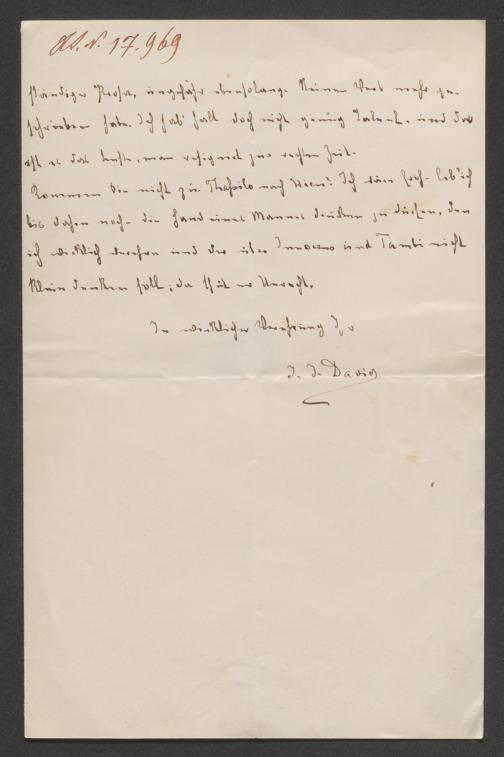 H.I.N. 17.969
ständiger Prosa, ungefähr ebensolange keinen Vers mehr ge-
schrieben habe. Ich hab' halt doch nicht genug Talent. und da
ist es das beste, man resigniert zur rechten Zeit.
Kommen Sie nicht zu Theophilo nach Wien? Ich wäre froh, leb' ich
bis dahin noch die Hand eines Mannes drücken zu dürfen, den
ich wirklich verehre und der über Innocens und Tambi nicht
klein denken soll; da thät er Unrecht.
In wirklicher Verehrung Ihr
J. J. David